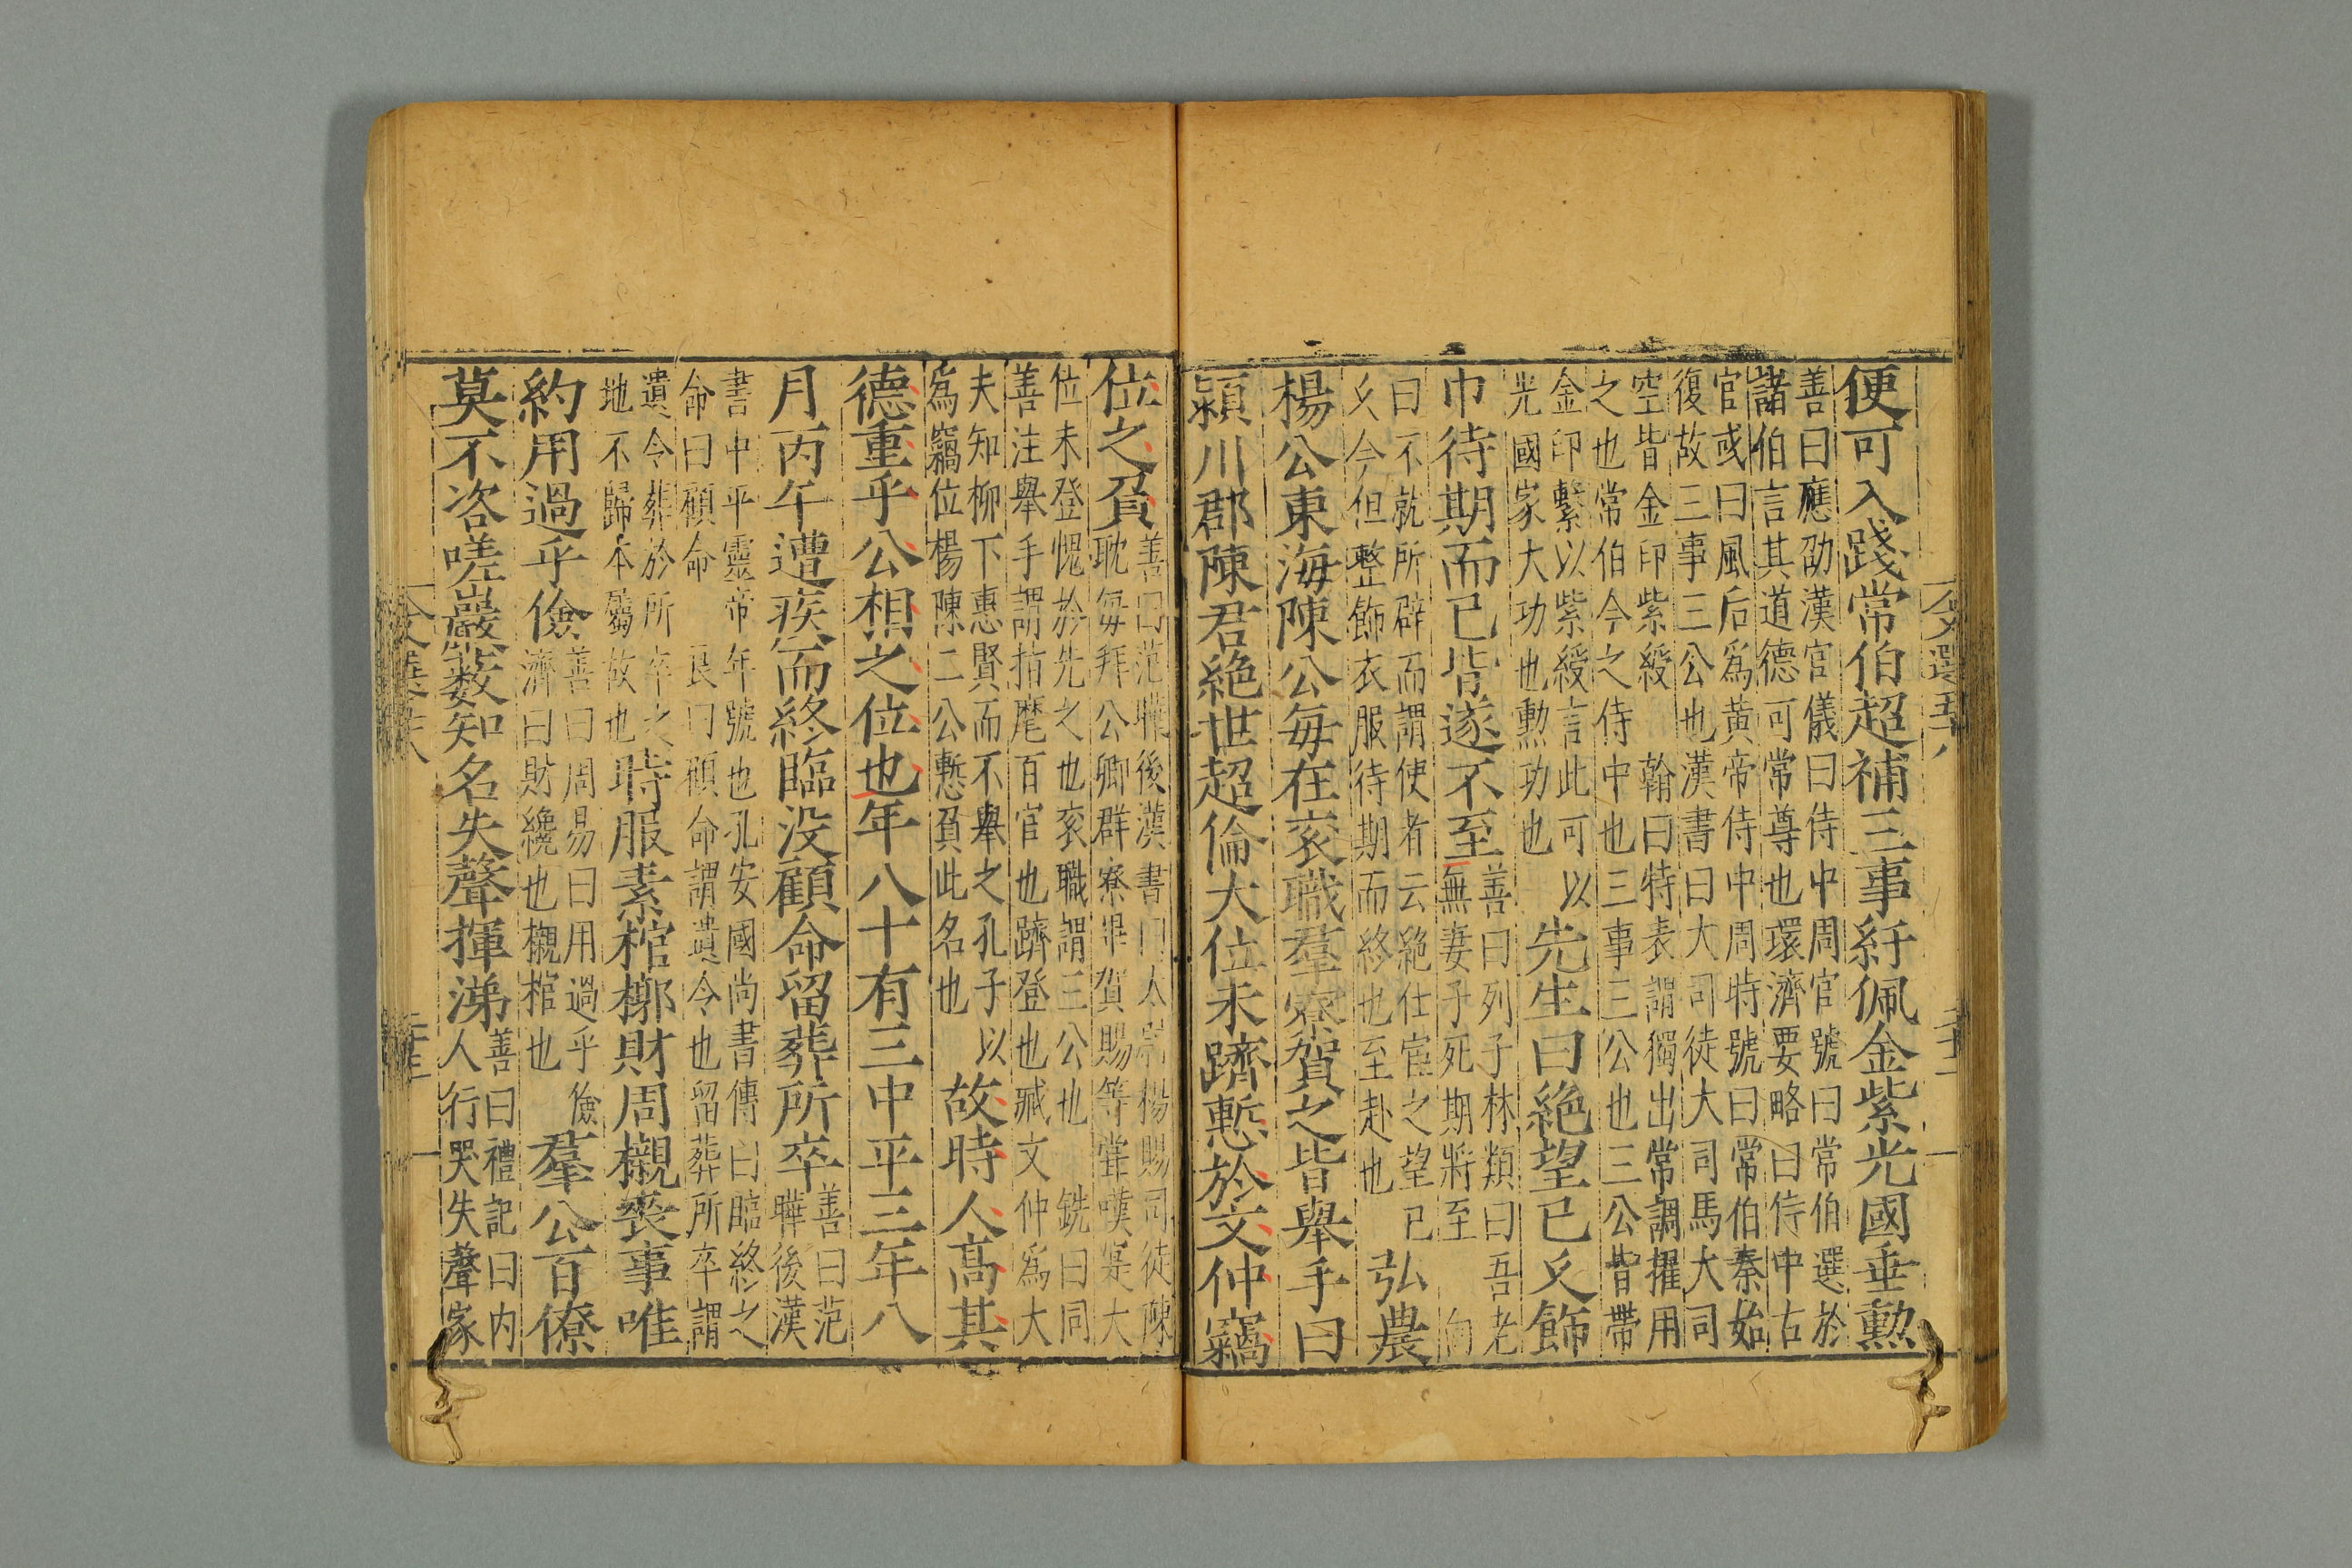 便可入踐常伯超補三事紆佩金紫光國垂勲
善曰應劭漢官儀曰侍中周官號曰常伯選於
諸伯言其道德可常尊也環濟要略曰侍中古
官或曰風后爲黃帝侍中周時號曰常伯秦始
復故三事三公也漢書曰大司徒大司馬大司
空皆金印紫綬 翰曰特表謂獨出常調擢用
之也常伯今之侍中也三事三公也三公皆帶
金印繫以紫綬言此可以
光國家大功也勲功也
先生曰絶望已久飾
巾待期而已皆遂不至
善曰列子林類曰吾老
無妻子死期將至 向
曰不就所辟而謂使者云絶仕宦之望已
久今但整飾衣服待期而終也至赴也
弘農
楊公東海陳公每在衮職羣寮賀之皆舉手曰
潁川郡陳君絶世超倫大位未躋慙於文仲竊
位之負
善曰范曄後漢書曰太尉楊賜司徒陳
耽每拜公卿群寮畢賀賜等常嘆寔大
位未登愧於先之也衮職謂三公也 銑曰同
善注舉手謂指麾百官也躋登也臧文仲爲大
夫知柳下惠賢而不舉之孔子以
爲竊位楊陳二公慙負此名也
故時人高其
德重乎公相之位也年八十有三中平三年八
月丙午遭疾而終臨没顧命留葬所卒
善曰范
曄後漢
書中平靈帝年號也孔安國尚書傳曰臨終之
命曰顧命 良曰顧命謂遺令也留葬所卒謂
遺令葬於所卒之
地不歸本鄉故也
時服素棺槨財周櫬喪事唯
約用過乎儉
善曰周易曰用過乎儉
濟曰財纔也櫬棺也
羣公百僚
莫不咨嗟巖藪知名失聲揮涕
善曰禮記曰内
人行哭失聲家